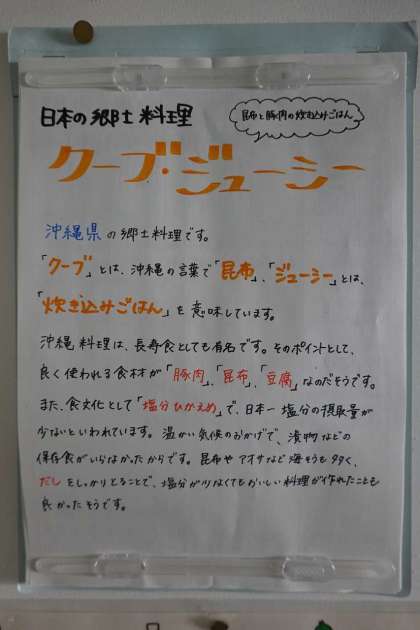 日本の郷土料理
昆布と豚肉の炊き込みごはん
クーブ・ジューシー
沖縄県の郷土料理です。
「クーブ」とは、沖縄の言葉で「昆布」、「ジューシー」とは、
「炊き込みごはん」を意味しています。
沖縄料理は、長寿食としても有名です。そのポイントとして、
良く使われる食材が「豚肉」、「昆布」、「豆腐」なのだそうです。
また、食文化として「塩分ひかえめ」で、日本一塩分の摂取量が
少ないといわれています。温かい気候のおかげで、漬物などの
保存食がいらなかったからです。昆布やアオサなど海そうも多く、
だしをしっかりとることで、塩分が少なくてもおいしい料理が作れたことも
良かったそうです。